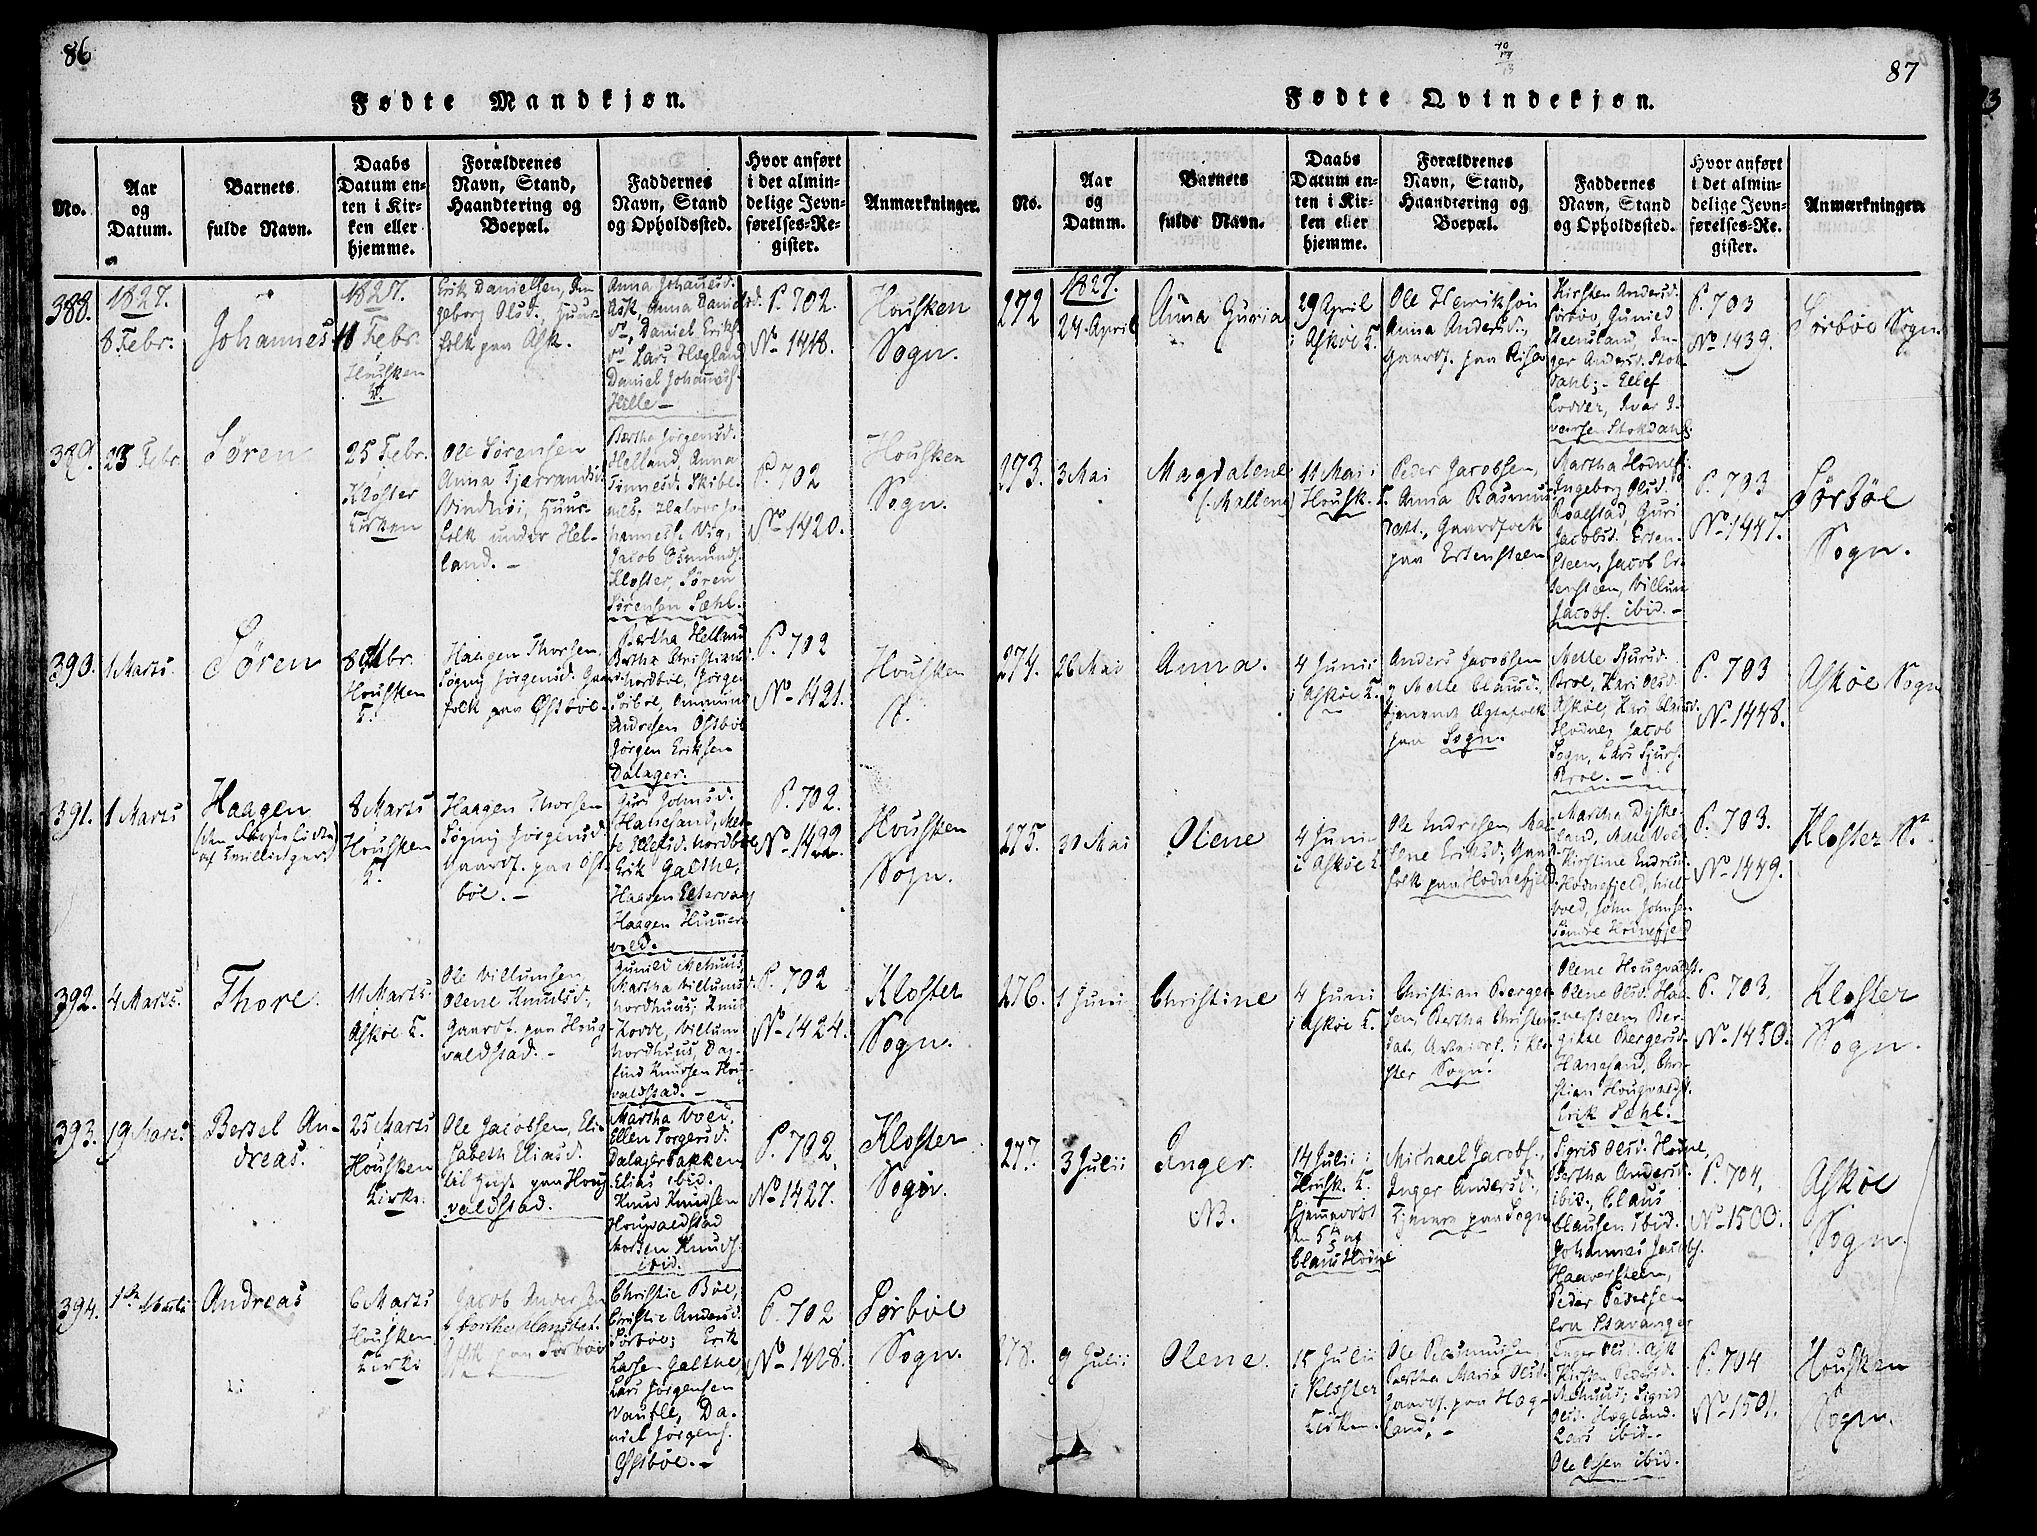 86
Fødte Mandkjøn.
No.
Aar
og
Datum.
Barnets
fulde Navn.
Daabs
Datum en-
ten i Kir-
ken eller
hjemme.
Forældrenes
Navn, Stand,
Haandtering og
Boepæl.
Faddernes
Navn, Stand
og Opholdssted.
Hvor anført
i det almin-
delige Jevn-
førelses-Re-
gister.
Anmærkninger.
388.
1827.
8 Febr.
Johannes
1827.
11 Febr.
Housken
K.
Erik Danielsen, In-
geborg Olsd., Huus-
folk paa Ask.
Anna Johansd.
Ask, Anna Danielsd.
Daniel Eriks.
Lars Hægland
Daniel Johannes.
Hille –
P. 702.
No 1418.
Housken
Sogn.
389.
23 Febr
Søren
25 Febr.
i Kloster
Kirken
Ole Sørensen
Anna Tjerrandsd.
Huus-
folk under Hel-
land. –
Bertha Jørgensd.
Helland, Anna
Tønnesd. Skibe-
nes. Halvor Jo-
hanness. Vig,
Jacob Osmunds.
Kloster, Søren
Sørensen Sæhl.
P. 702
No 1420.
Housken
Sogn.
390.
1 Marts.
Søren
Housken
K.
Haagen Thorsen,
Søgny Jørgensd. Gaar
folk paa Østbøe.
Bertha Helland
Bertha Christiansd.
Nordbøe, Jørgen
Sørbøe, Ommund
Andersen Østbøe
Jørgen Eriksen
Dalager.
P. 702
No 1421.
Housken
S.
391.
1 Marts
Haagen
af Tvillinger
8 Marts
i Housken
K.
Haagen Thorsen
Søgny Jørgensd.
Gaardf. paa Øst-
bøe. –
Guri Johnsd.
Hanesand, Met-
te Nordbøe
Erik Galthe,
Haagen
Haagen Hummer-
vold.
P. 702.
No 1422.
Housken
Sogn.
392.
4 Marts.
Thore.
11 Marts.
Askøe K.
Ole Villumsen,
Olene Knudsd.,
Gaardf. paa Houg-
valdstad. –
Gunild Mehuus,
Martha Villumsd.
Nordhuus, Knud
Villum
Nordhuus, Dag-
find Knudsen Hou-
valdstad. –
P. 702
No 1424.
Kloster
Sogn.
393.
19 Marts
Bertel An-
dreas.
25 Marts
i Housken
Kirke.
Ole Jacobsen, Eli-
sabeth Eliasd.
til Huse paa Houg-
valdstad.
Martha Voll.
Ellen Torgersd.
Dalagerbakken
Elias ibid.
Knud Knudsen
Hougvaldstad
Morten Knuds.
ibid.
P. 702,
No 1427.
Kloster
Sogn.
394.
Andreas
6 Marts
i Housken
Kirke
Jacob Iversen
Christie Bøe,
Christie Andersd.
Sørbøe; Erik
Larsen Galthe,
Lars Jørgensen
Da-
niel Jørgens.
Østbøe. –
P. 702
No 1428.
Sørbøe
Sogn.
87
Fødte Qvindekjøn.
No.
Aar
og
Datum.
Barnets
fulde Navn.
Daabs
Datum en-
ten i Kir-
ken eller
hjemme.
Forældrenes
Navn, Stand,
Haandtering og
Boepæl.
Faddernes
Navn, Stand
og Opholdssted.
Hvor anført
i det almin-
delige Jevn-
førelses-Re-
gister.
Anmærkninger.
272
1827.
24 April
Anna Guria
29 April
i Askøe K.
Ole Henriksen
Anna Andersd.,
Gaardf. paa Risa
Kirsten Andersd.
Sørbøe, Gunild
Steensland, In-
ger Andersd. Stok-
dahl; – Ellef
Lodver, Ivar I-
versen Stokdahl
P. 703
No 1439.
Sørbøe Sogn.
273.
3 Mai
Magdalene
(Mallene)
11 Mai i
Housk. K.
Peder Jacobsen,
Anna Rasmus-
datt., Gaardfolk
paa Ertensteen
Martha Hodnef.
Ingeborg Olsd.
Roalstad, Guri
Jacobsd. Erten-
steen, Jacob Er-
tensteen, Villum
Jacobs. ibid. –
P. 703
No 1447.
Sørbøe
Sogn.
274.
26 Mai
Anna.
4 Juni
i Askøe K.
Anders Jacobsen
Melle Clausd.,
tjenende Egtefolk
paa Sogn.
Melle Sjursd.
Broe, Kari Olsd.
Askøe, Kari Clausd.
Hodne, Jacob
Sogn, Lars Sjurs.
Broe. –
P. 703
No 1448.
Askøe Sogn
275.
30 Mai
Olene
4 Juni
i Askøe K
Ole Endresen, Mal-
lene Eriksd., Gaard-
folk paa Hodnefjeld
Martha Dyske-
land, Malle Vol
Kirstine Endresd.
Hodnefjeld, Niels
Voll, John Johnsen
Søndre Hodnefjeld
P. 703.
No 1449.
Kloster S.
276.
1 Juni
Christine
4 Juni
i Askøe K.
Christian Berger-
sen, Bertha Christens-
dat. i Klo-
ster Sogn.
Olene Hougvaldst.
Olene Olsd. Haa-
versteen, Ber-
gitte Bergersd.
Hanesand, Chri-
stian Hougvaldst.
Erik Sæhl. –
P. 703,
No 1450.
Kloster
Sogn.
277.
3 Julii
Inger.
NB.
14 Julii i
Housk. K.
hjemmedøbt
den 5te af
Claus Hodne
Michael Jacobs.,
Inger Andersd.,
tjenere paa Sogn
Sigrid Olsd. Hodne,
Bertha Andersd.
ibid., Claus
Clausen ibid.
Johannes Jacobs.
Haaversteen,
Peder Pedersen
Stavanger
P. 704,
No 1500.
Askøe
Sogn.
278.
9 Julii
Olene.
15 Julii
i Kloster
Kirken.
Ole Rasmussen,
Bertha Maria Olsd.
Gaardf. paa Hæg-
land. –
Inger Olsd. Ask
Kirsten Pedersd.
Mehuus; Sigrid
Olsd. Hægland.
Lars ibid.
Ole Olsen ibid.
P. 704
No 1501.
Housken
Sogn.